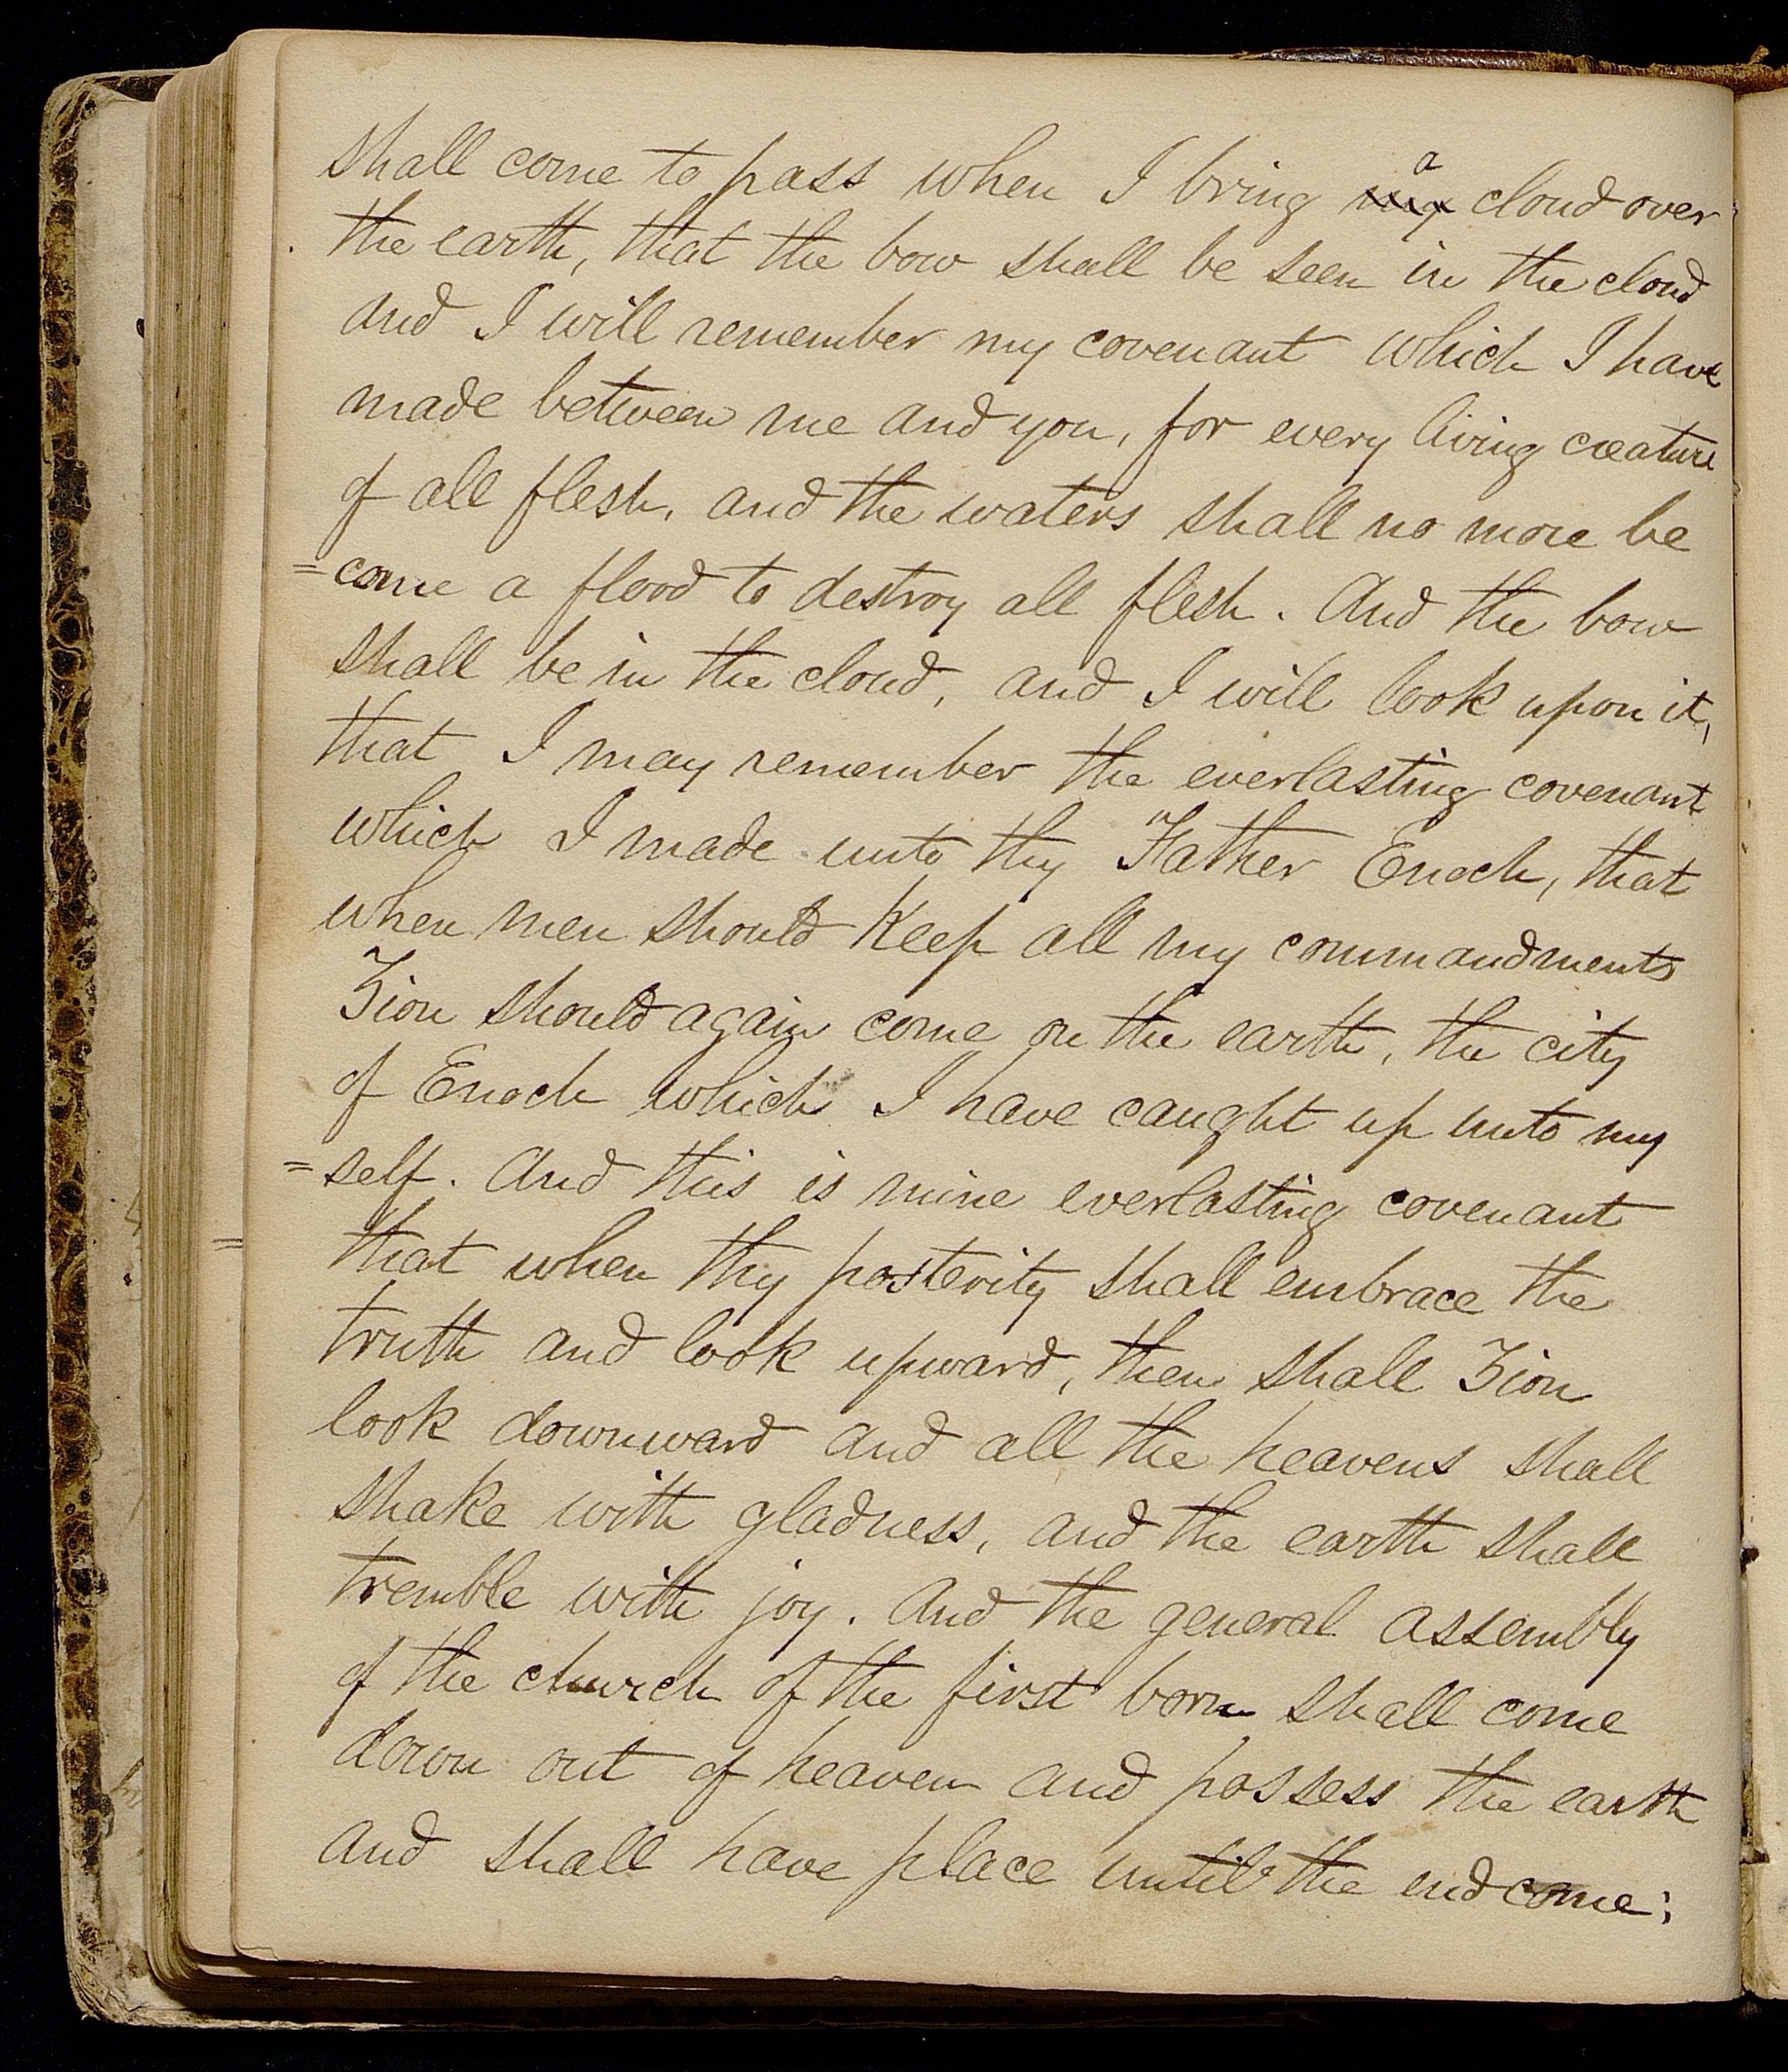 shall come to pass when I bring my a cloud over
the earth, that the bow shall be seen in the cloud
and I will remember my covenant which I have
made between me and you, for every living creature
of all flesh, and the waters shall no more be
=come a flood to destroy all flesh. And the bow
shall be in the cloud, and I will look upon it,
that I may remember the everlasting covenant
which I made unto thy Father Enoch, that
when men should keep all my commandments
Zion should again come on the earth, the city
of Enoch which I have caught up unto my
=self. And this is mine everlasting covenant
= that when thy posterity shall embrace the
truth and look upward, then shall Zion
look downward and all the heavens shall
shake with gladness, and the earth shall
tremble with joy. And the general assembly
of the church of the first born shall come
down out of heaven and possess the earth
and shall have place until the end come;